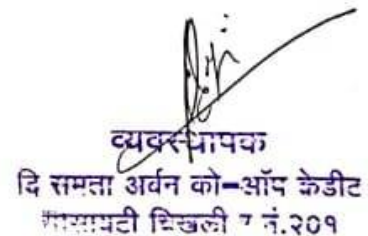 व्यवस्थापक
दि समता अर्वन को-ऑप क्रेडीट
चिखली नं.२०१